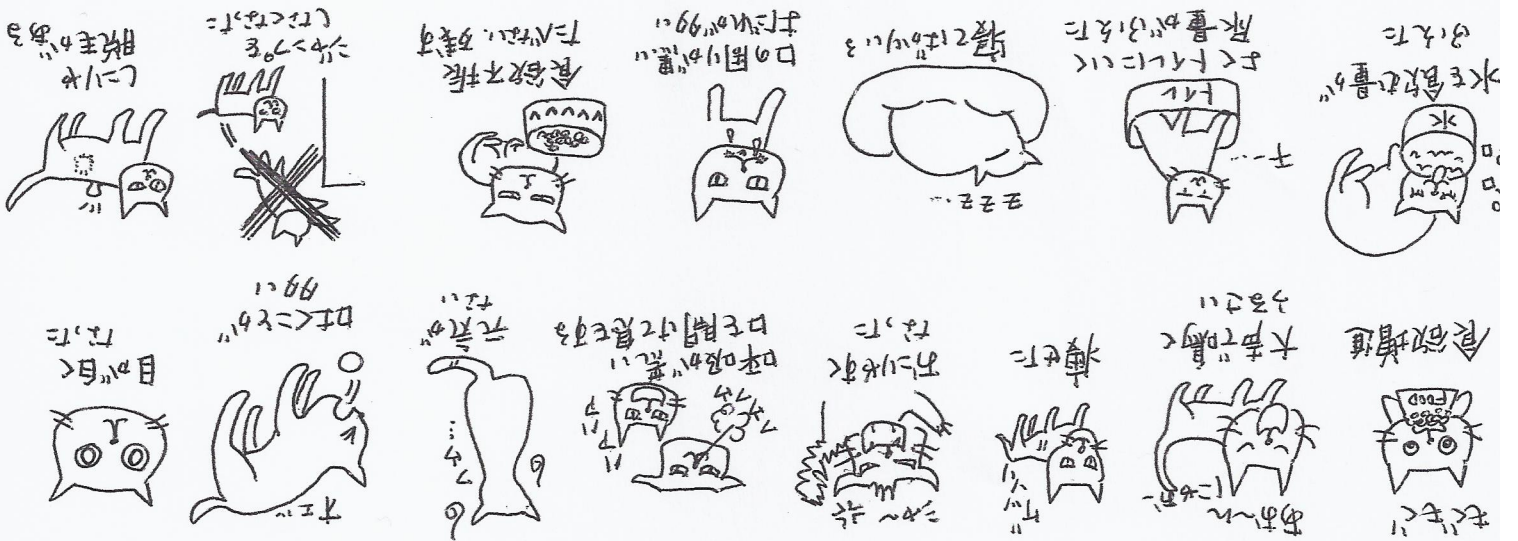 もぐもぐ
FOOD
食欲増進
あお〜ん
にゃお〜
大声で鳴く
うるさい
ゲッソリ
痩せた
シャ〜
おこりやすく
なった
フゥフゥ
ハアハア
呼吸が荒い
口を開けて息をする
フゥ…
元気が
ない
オエッ
吐くことが
多い
目が白く
なった
水
水を飲む量が
ふえた
チー…
トイレ
よくトイレにいく
尿量がふえた
zzz…
寝てばかりいる
口の周りが
よだれが多い
食欲不振
たべない、残す
ジャンプを
しなくなった
しこりや
脱毛がある